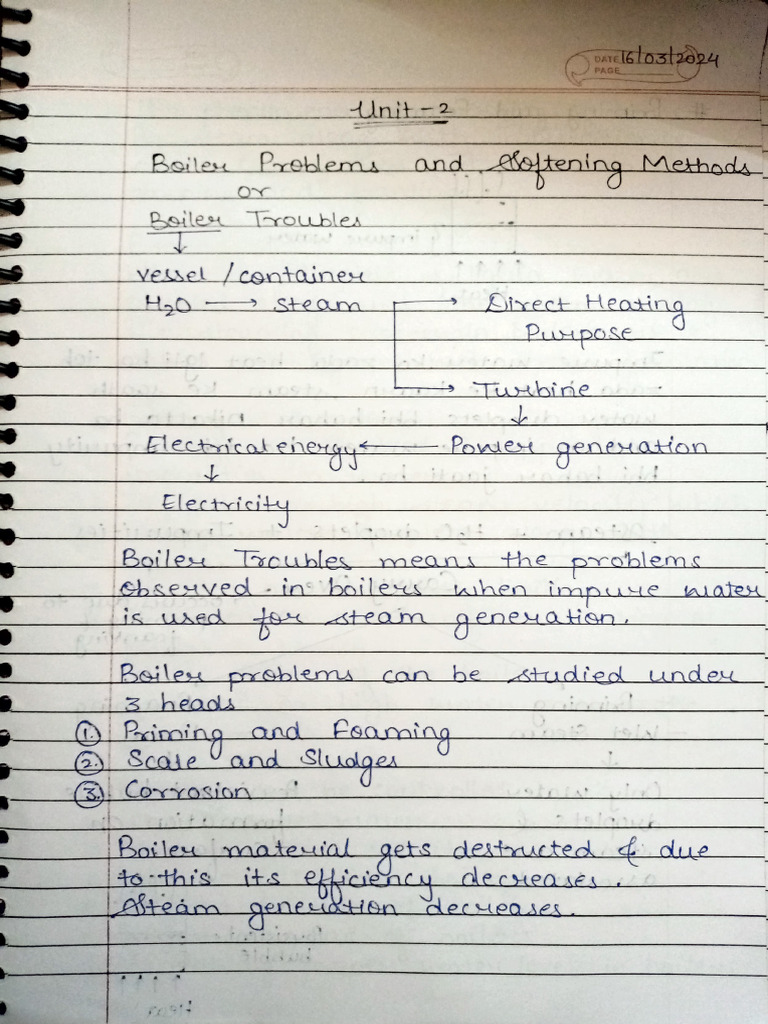 DATE 16/03/2024
PAGE
Unit-2
Boiler Problems and Softening Methods
or
Boiler Troubles
↓
vessel/container
H₂O → steam → Direct Heating
Purpose
→ Turbine
↓
Electrical energy ← Power generation
↓
Electricity
Boiler Troubles means the problems
observed in boilers when impure water
is used for steam generation.
Boiler problems can be studied under
3 heads
1. Priming and Foaming
2. Scale and Sludges
3. Corrosion
Boiler material gets destructed & due
to this its efficiency decreases.
Steam generation decreases.